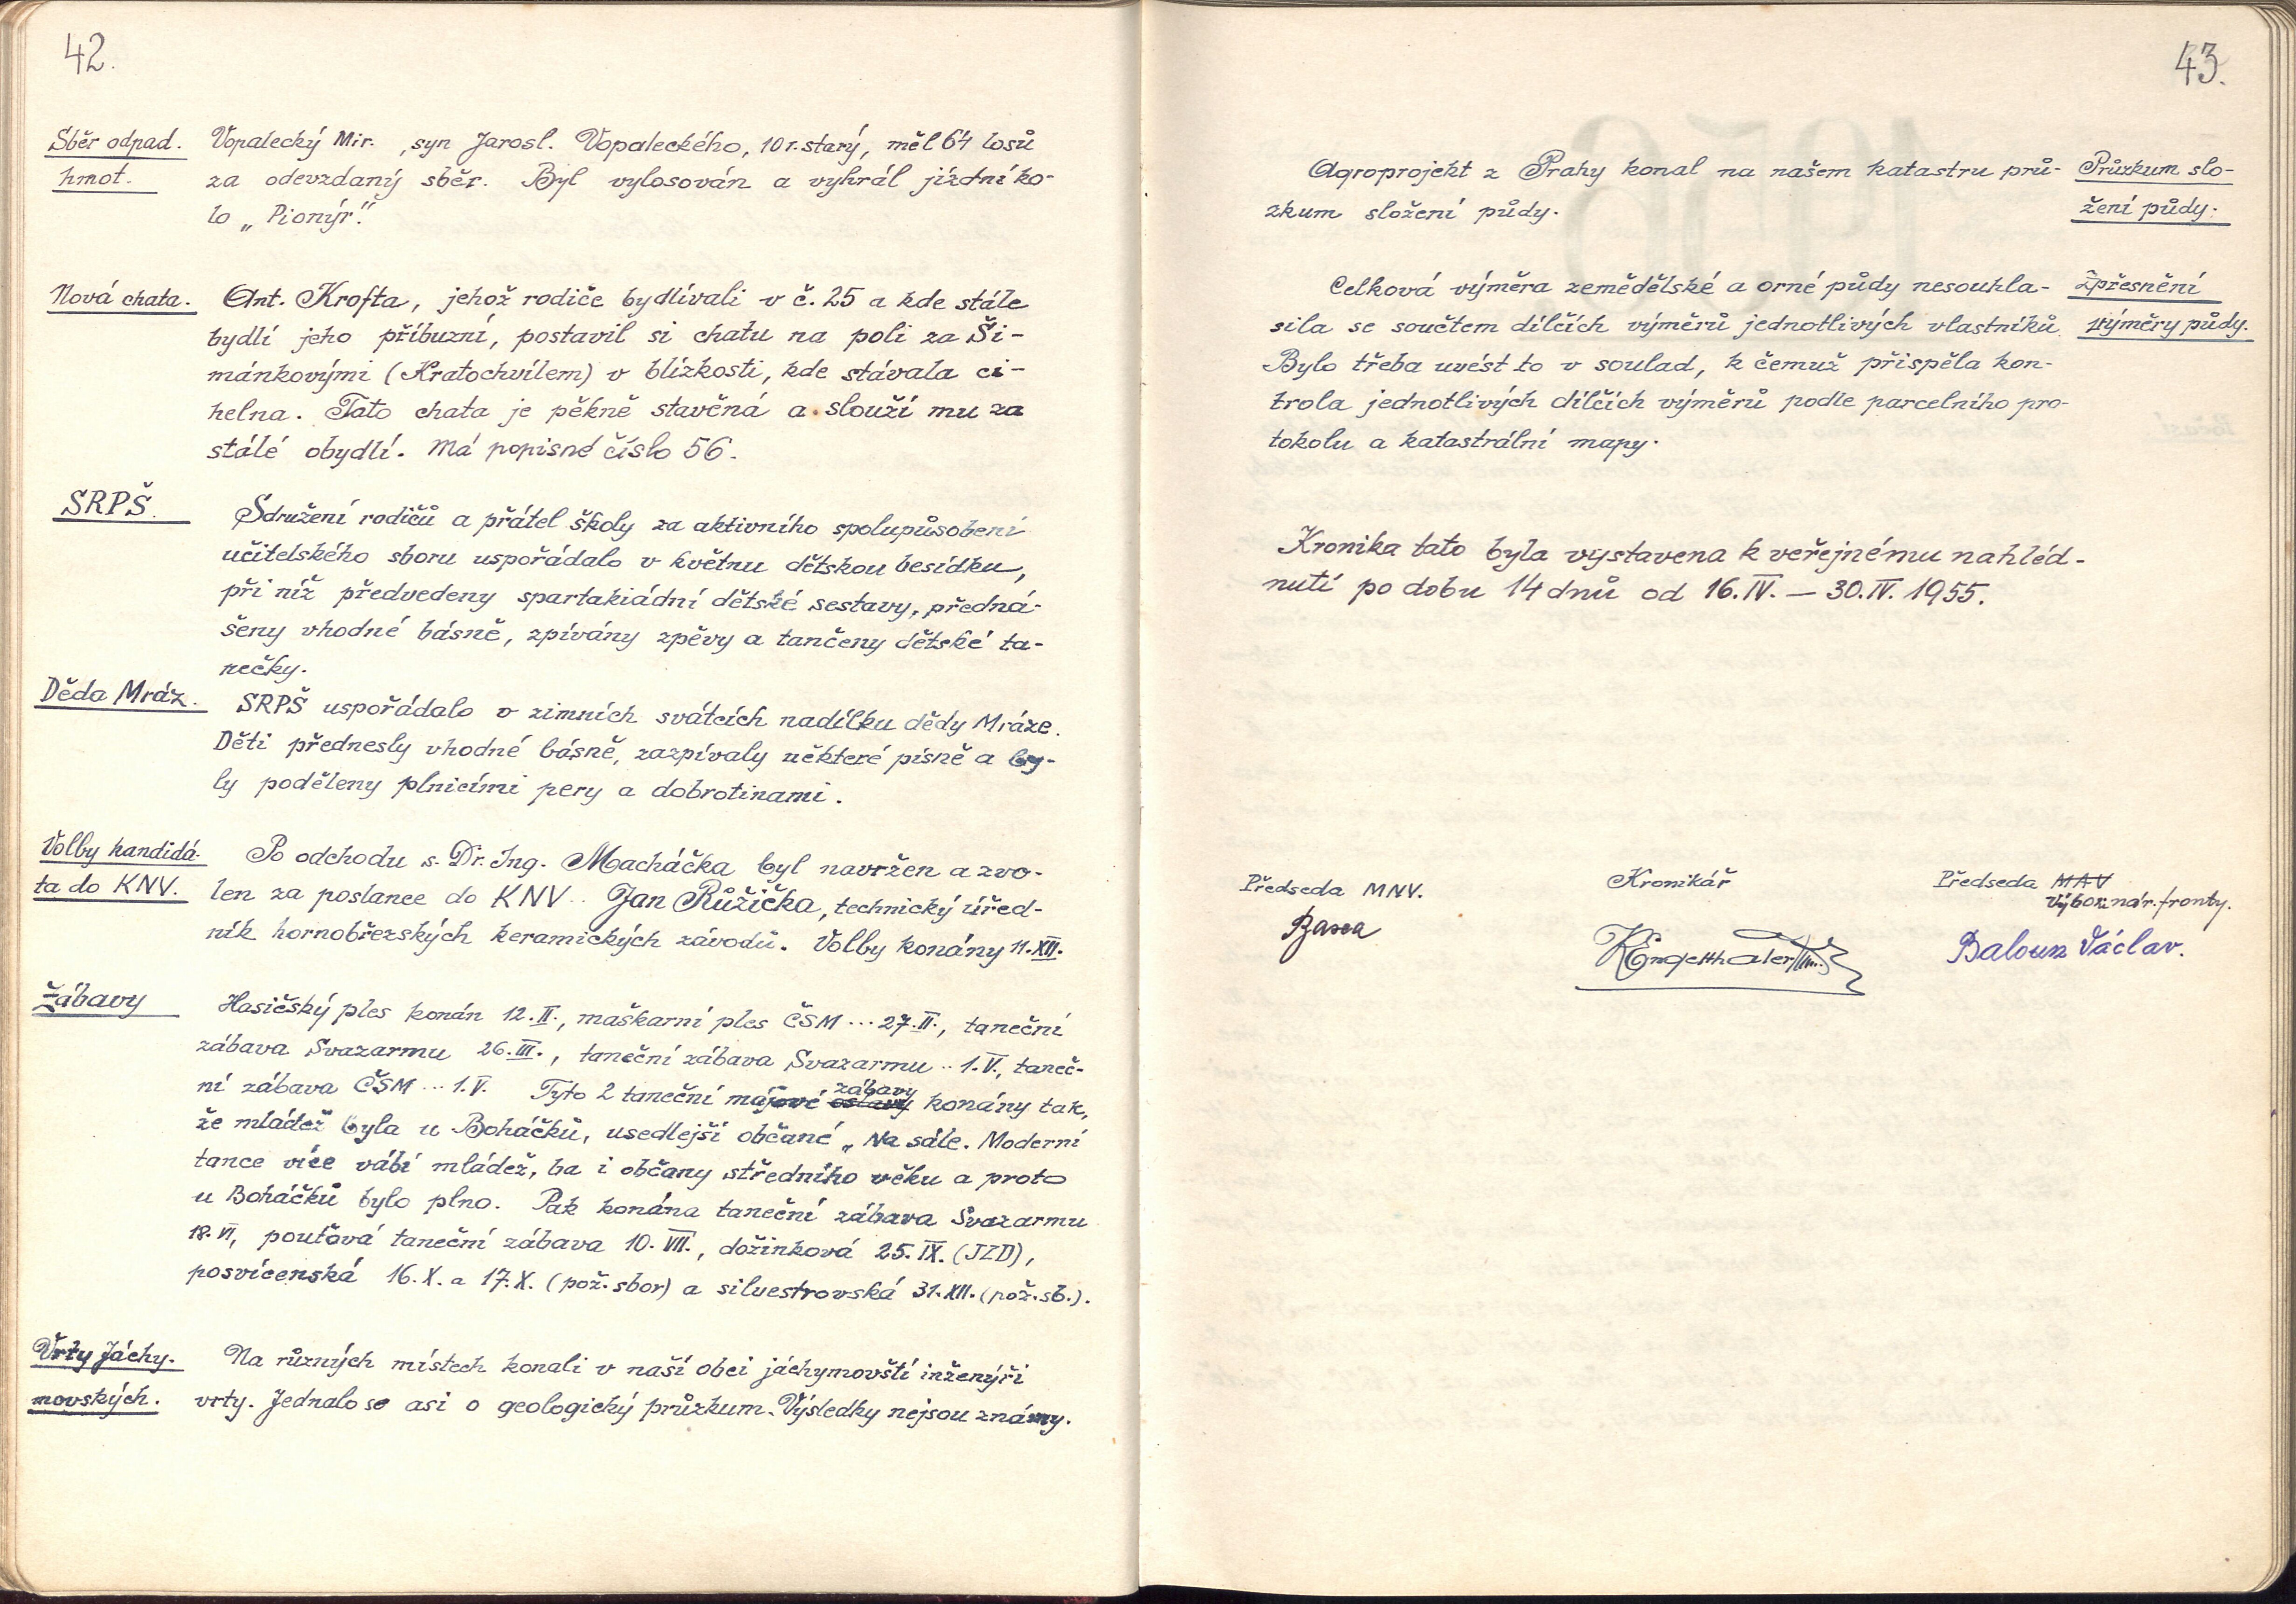 42.
Sběr odpad. Vopalecký Mir. , syn Jarosl. Vopaleckého, 10 r. starý, měl 64 losů
hmot. za odevzdaný sběr. Byl vylosován a vyhrál jízdní ko-
lo „Pionýr".
Nová chata. Ant. Krofta, jehož rodiče bydlívali v č. 25 a kde stále
bydlí jeho příbuzní, postavil si chatu na poli za Ši-
mánkovými (Kratochvílem) v blízkosti, kde stávala ci-
helna. Tato chata je pěkně stavěná a slouží mu za
stálé obydlí. Má popisné číslo 56.
SRPŠ. Sdružení rodičů a přátel školy za aktivního spolupůsobení
učitelského sboru uspořádalo v květnu dětskou besídku,
při níž předvedeny spartakiádní dětské sestavy, předná-
šeny vhodné básně, zpívány zpěvy a tančeny dětské ta-
nečky.
Děda Mráz. SRPŠ uspořádalo v zimních svátcích nadílku dědy Mráze.
Děti přednesly vhodné básně, zazpívaly některé písně a by-
ly poděleny plnicími pery a dobrotinami.
Volby kandidá- Po odchodu s. Dr. Ing. Macháčka byl navržen a zvo-
ta do KNV. len za poslance do KNV.. Jan Růžička, technický úřed-
ník hornobřezských keramických závodů. Volby konány 11. XII.
Zábavy Hasičský ples konán 12. II., maškarní ples ČSM ... 27. II., taneční
zábava Svazarmu 26. III., taneční zábava Svazarmu .. 1. V., taneč-
ní zábava ČSM ... 1. V. Tyto 2 taneční májové oslavy zábavy konány tak,
že mládež byla u Boháčků, usedlejší občané „ Na sále. Moderní
tance více vábí mládež, ba i občany středního věku a proto
u Boháčků bylo plno. Pak konána taneční zábava Svazarmu
18. VI, pouťová taneční zábava 10. VII., dožinková 25. IX. (JZD),
posvícenská 16. X. a 17. X. (pož. sbor) a silvestrovská 31. XII. (pož. sb.).
Vrty Jáchy- Na různých místech konali v naší obci jáchymovští inženýři
movských. vrty. Jednalo se asi o geologický průzkum. Výsledky nejsou známy.
43.
Agroprojekt z Prahy konal na našem katastru prů- Průzkum slo-
zkum složení půdy. žení půdy.
Celková výměra zemědělské a orné půdy nesouhla- Zpřesnění
sila se součtem dílčích výměrů jednotlivých vlastníků. výměry půdy.
Bylo třeba uvést to v soulad, k čemuž přispěla kon-
trola jednotlivých dílčích výměrů podle parcelního pro-
tokolu a katastrální mapy.
Kronika tato byla vystavena k veřejnému nahléd-
nutí po dobu 14 dnů od 16. IV. — 30. IV. 1955.
Předseda MNV. Kronikář Předseda MAV
Výbor nár. fronty.
KEngelthaler Baloun Václav.